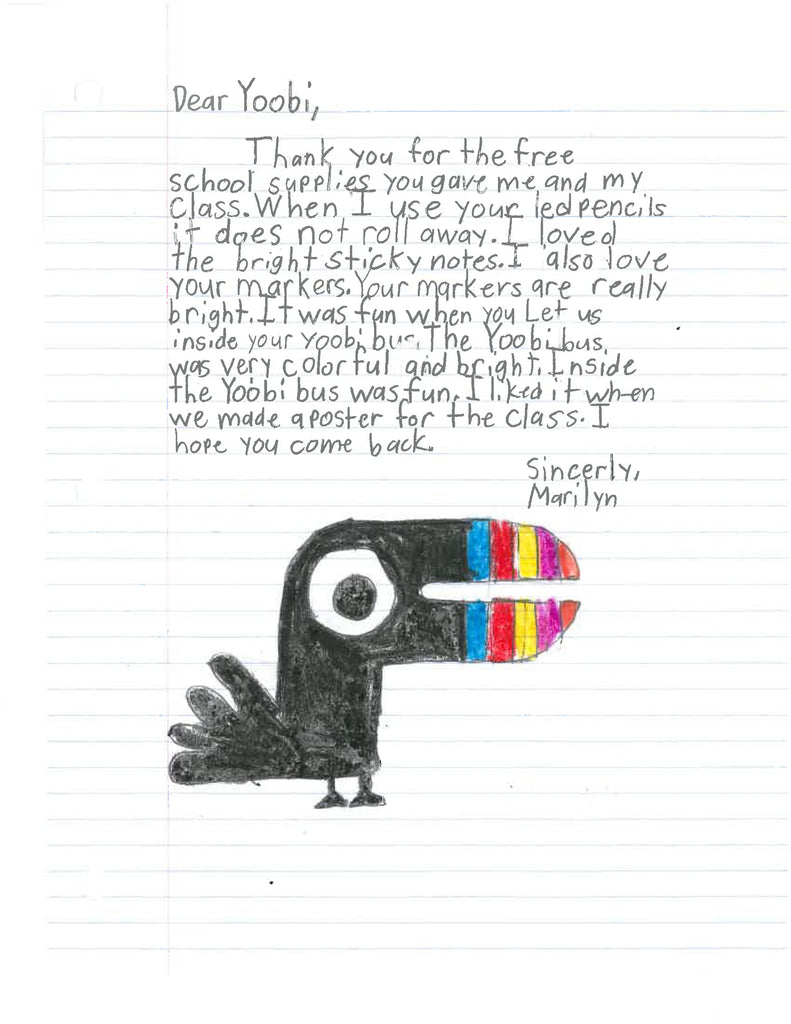 Dear Yoobi,
Thank you for the free
school supplies you gave me and my
class. When I use your led pencils
it does not roll away. I loved
the bright sticky notes. I also love
your markers. Your markers are really
bright. It was fun when you Let us
inside your yoobi bus. The Yoobi bus
was very colorful and bright. Inside
the Yoobi bus was fun. I liked it when
we made a poster for the class. I
hope you come back.
Sincerly,
Marilyn